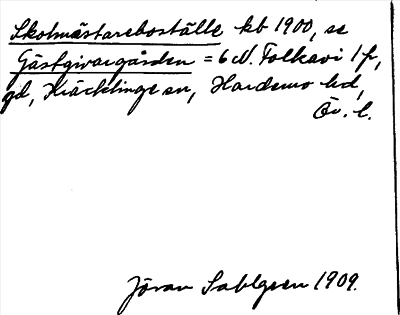 Skolmästarebostället kb 1900, se
Gästgivargården = 6 N. Folkavi 1 f,
gd, Kräcklinge sn, Hardemo hd,
Ör. l.
Jöran Sahlgren 1909.